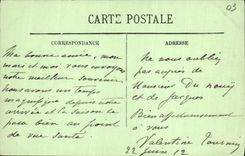 03
CARTE POSTALE
CORRESPONDANCE
Ma bonne amie, mon
mari et moi vous envoyons
notre meilleur souvenir
nous avons un temps
magnifique depuis notre
arrivée et la saison le
sera bien au point
de vue santé.
ADRESSE
Ne nous oubliez
pas auprès de
Monsieur Du
et de Jacques
Bien affectueusement
à vous
Valentine Tourney
22 juin 12